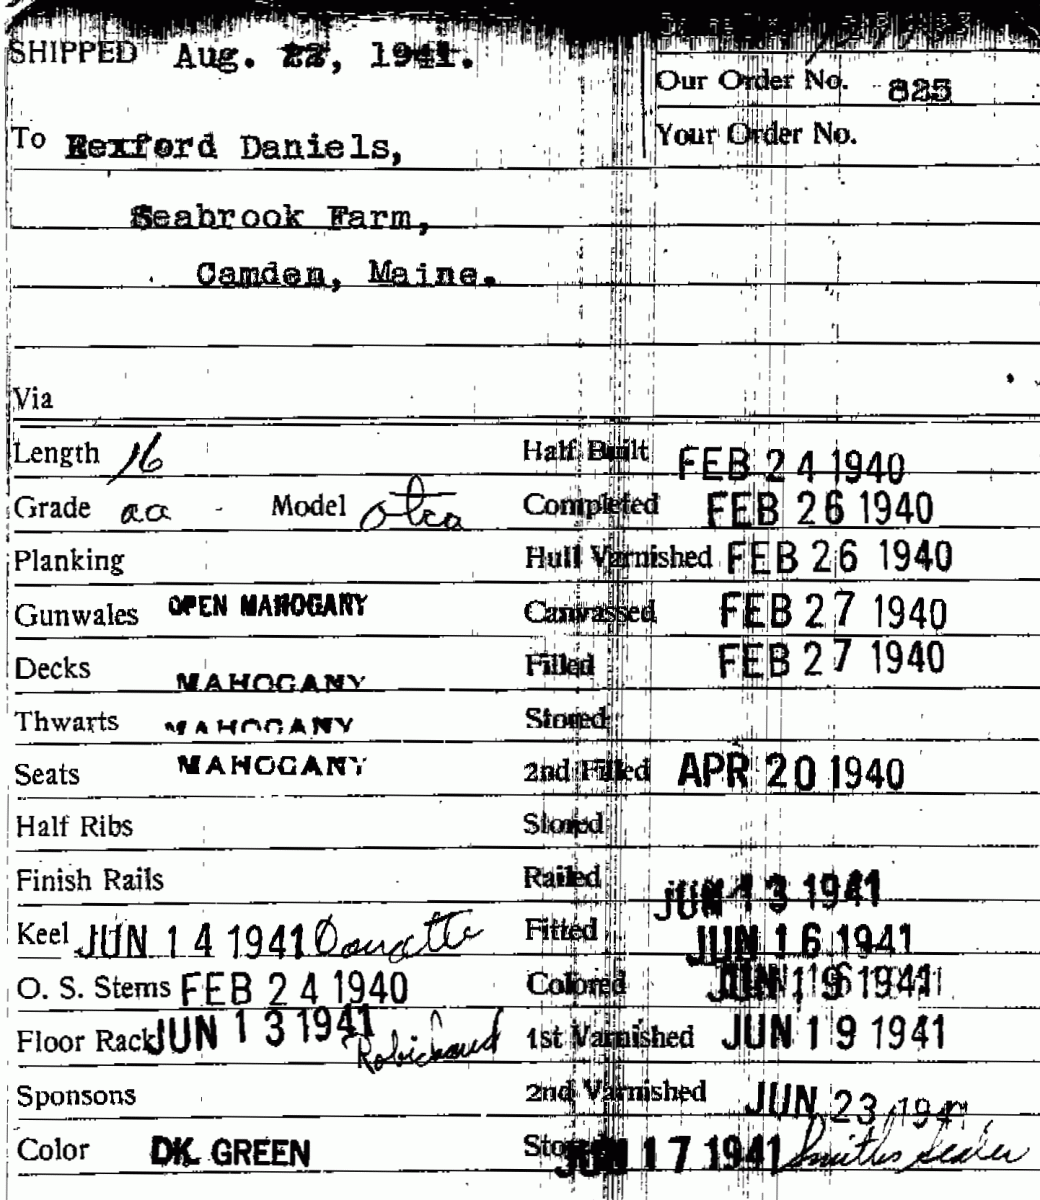 SHIPPED Aug. 22, 1941.
Our Order No. 825
To Rexford Daniels,
Your Order No.
Seabrook Farm,
Camden, Maine.
Via
Length 16 Half Built FEB 24 1940
Grade aa - Model otca Completed FEB 26 1940
Planking Hull Varnished FEB 26 1940
Gunwales OPEN MAHOGANY Canvassed FEB 27 1940
Decks MAHOGANY Filled FEB 27 1940
Thwarts MAHOGANY Stored
Seats MAHOGANY 2nd Filled APR 20 1940
Half Ribs Stored
Finish Rails Railed JUN 13 1941
Keel JUN 14 1941 Doucette Fitted JUN 16 1941
O. S. Stems FEB 24 1940 Colored JUN 1941
Floor Rack JUN 13 1941 Robichaud 1st Varnished JUN 19 1941
Sponsons 2nd Varnished JUN 23 1941
Color DK. GREEN Stored JUN 17 1941 Smiths Sealer